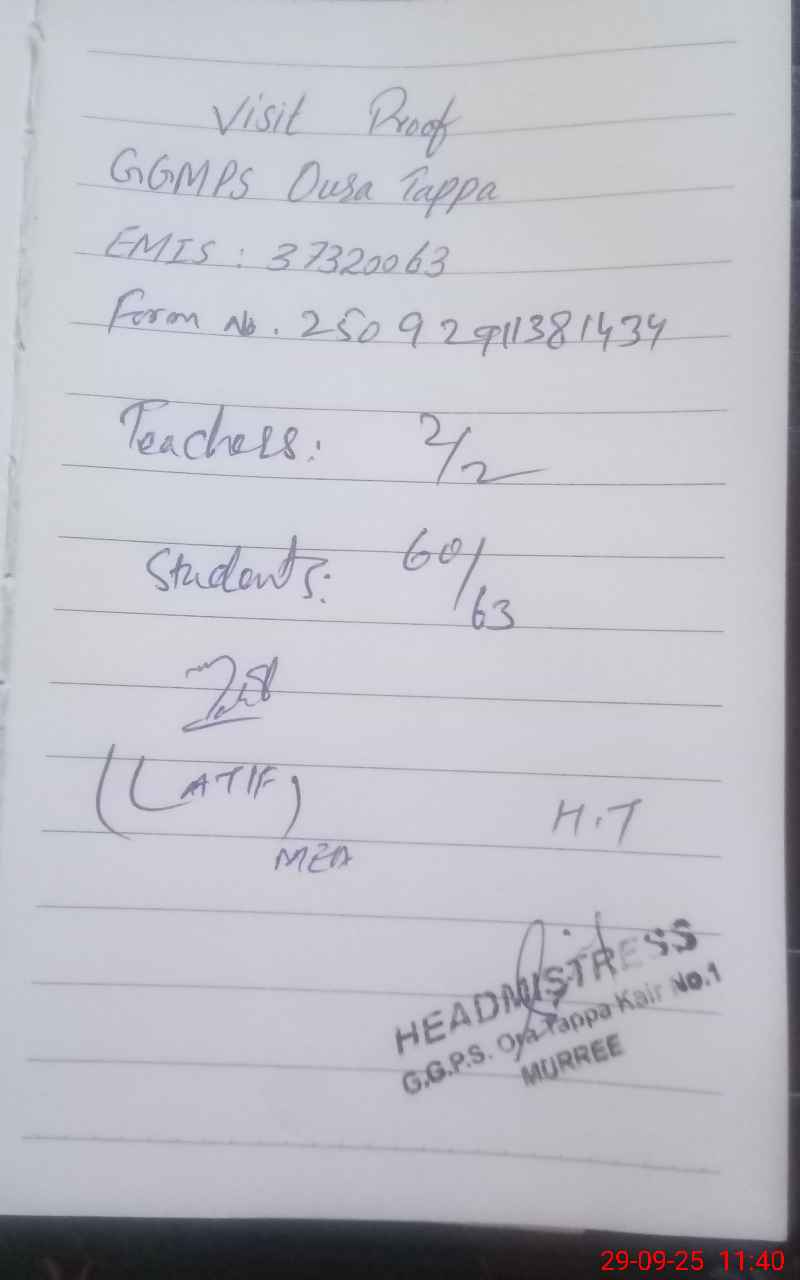 Visit Proof
GGMPS Ousa Tappa
EMIS : 37320063
Form No. 25092911381434
Teachers: 2/2
Students: 60/63
(LATIF)
MEA
H.T
HEADMISTRESS
G.G.P.S. Oya Tappa Kair No.1
MURREE
29-09-25 11:40